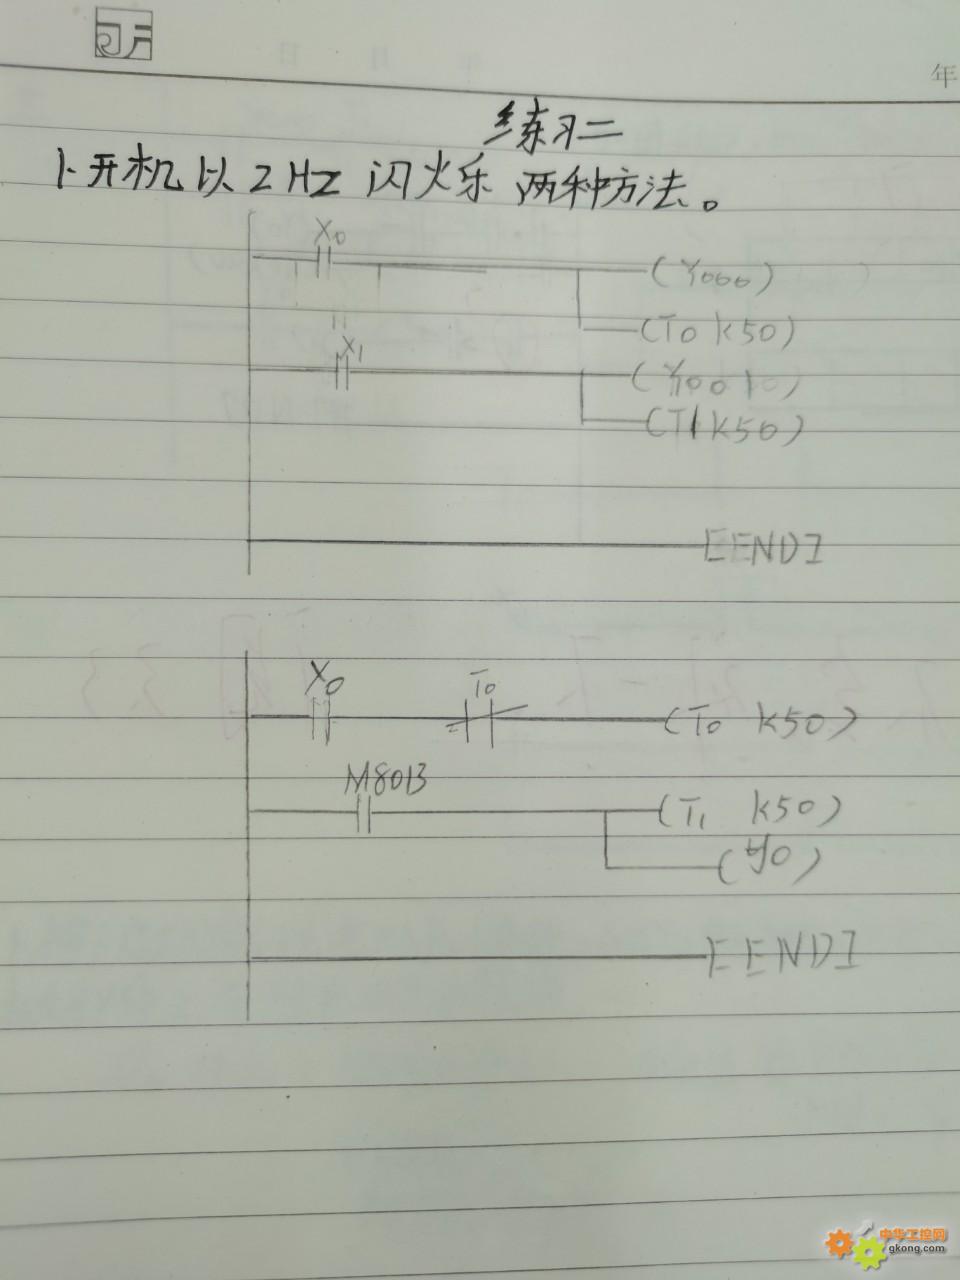 年
练习二
1.开机以2HZ闪火乐两种方法。
X0
(Y000)
(T0 K50)
X1
(Y001)
(T1 K50)
[END]
X0 T0
(T0 K50)
M8013
(T1 K50)
(Y0)
[END]
中华工控网
gkong.com